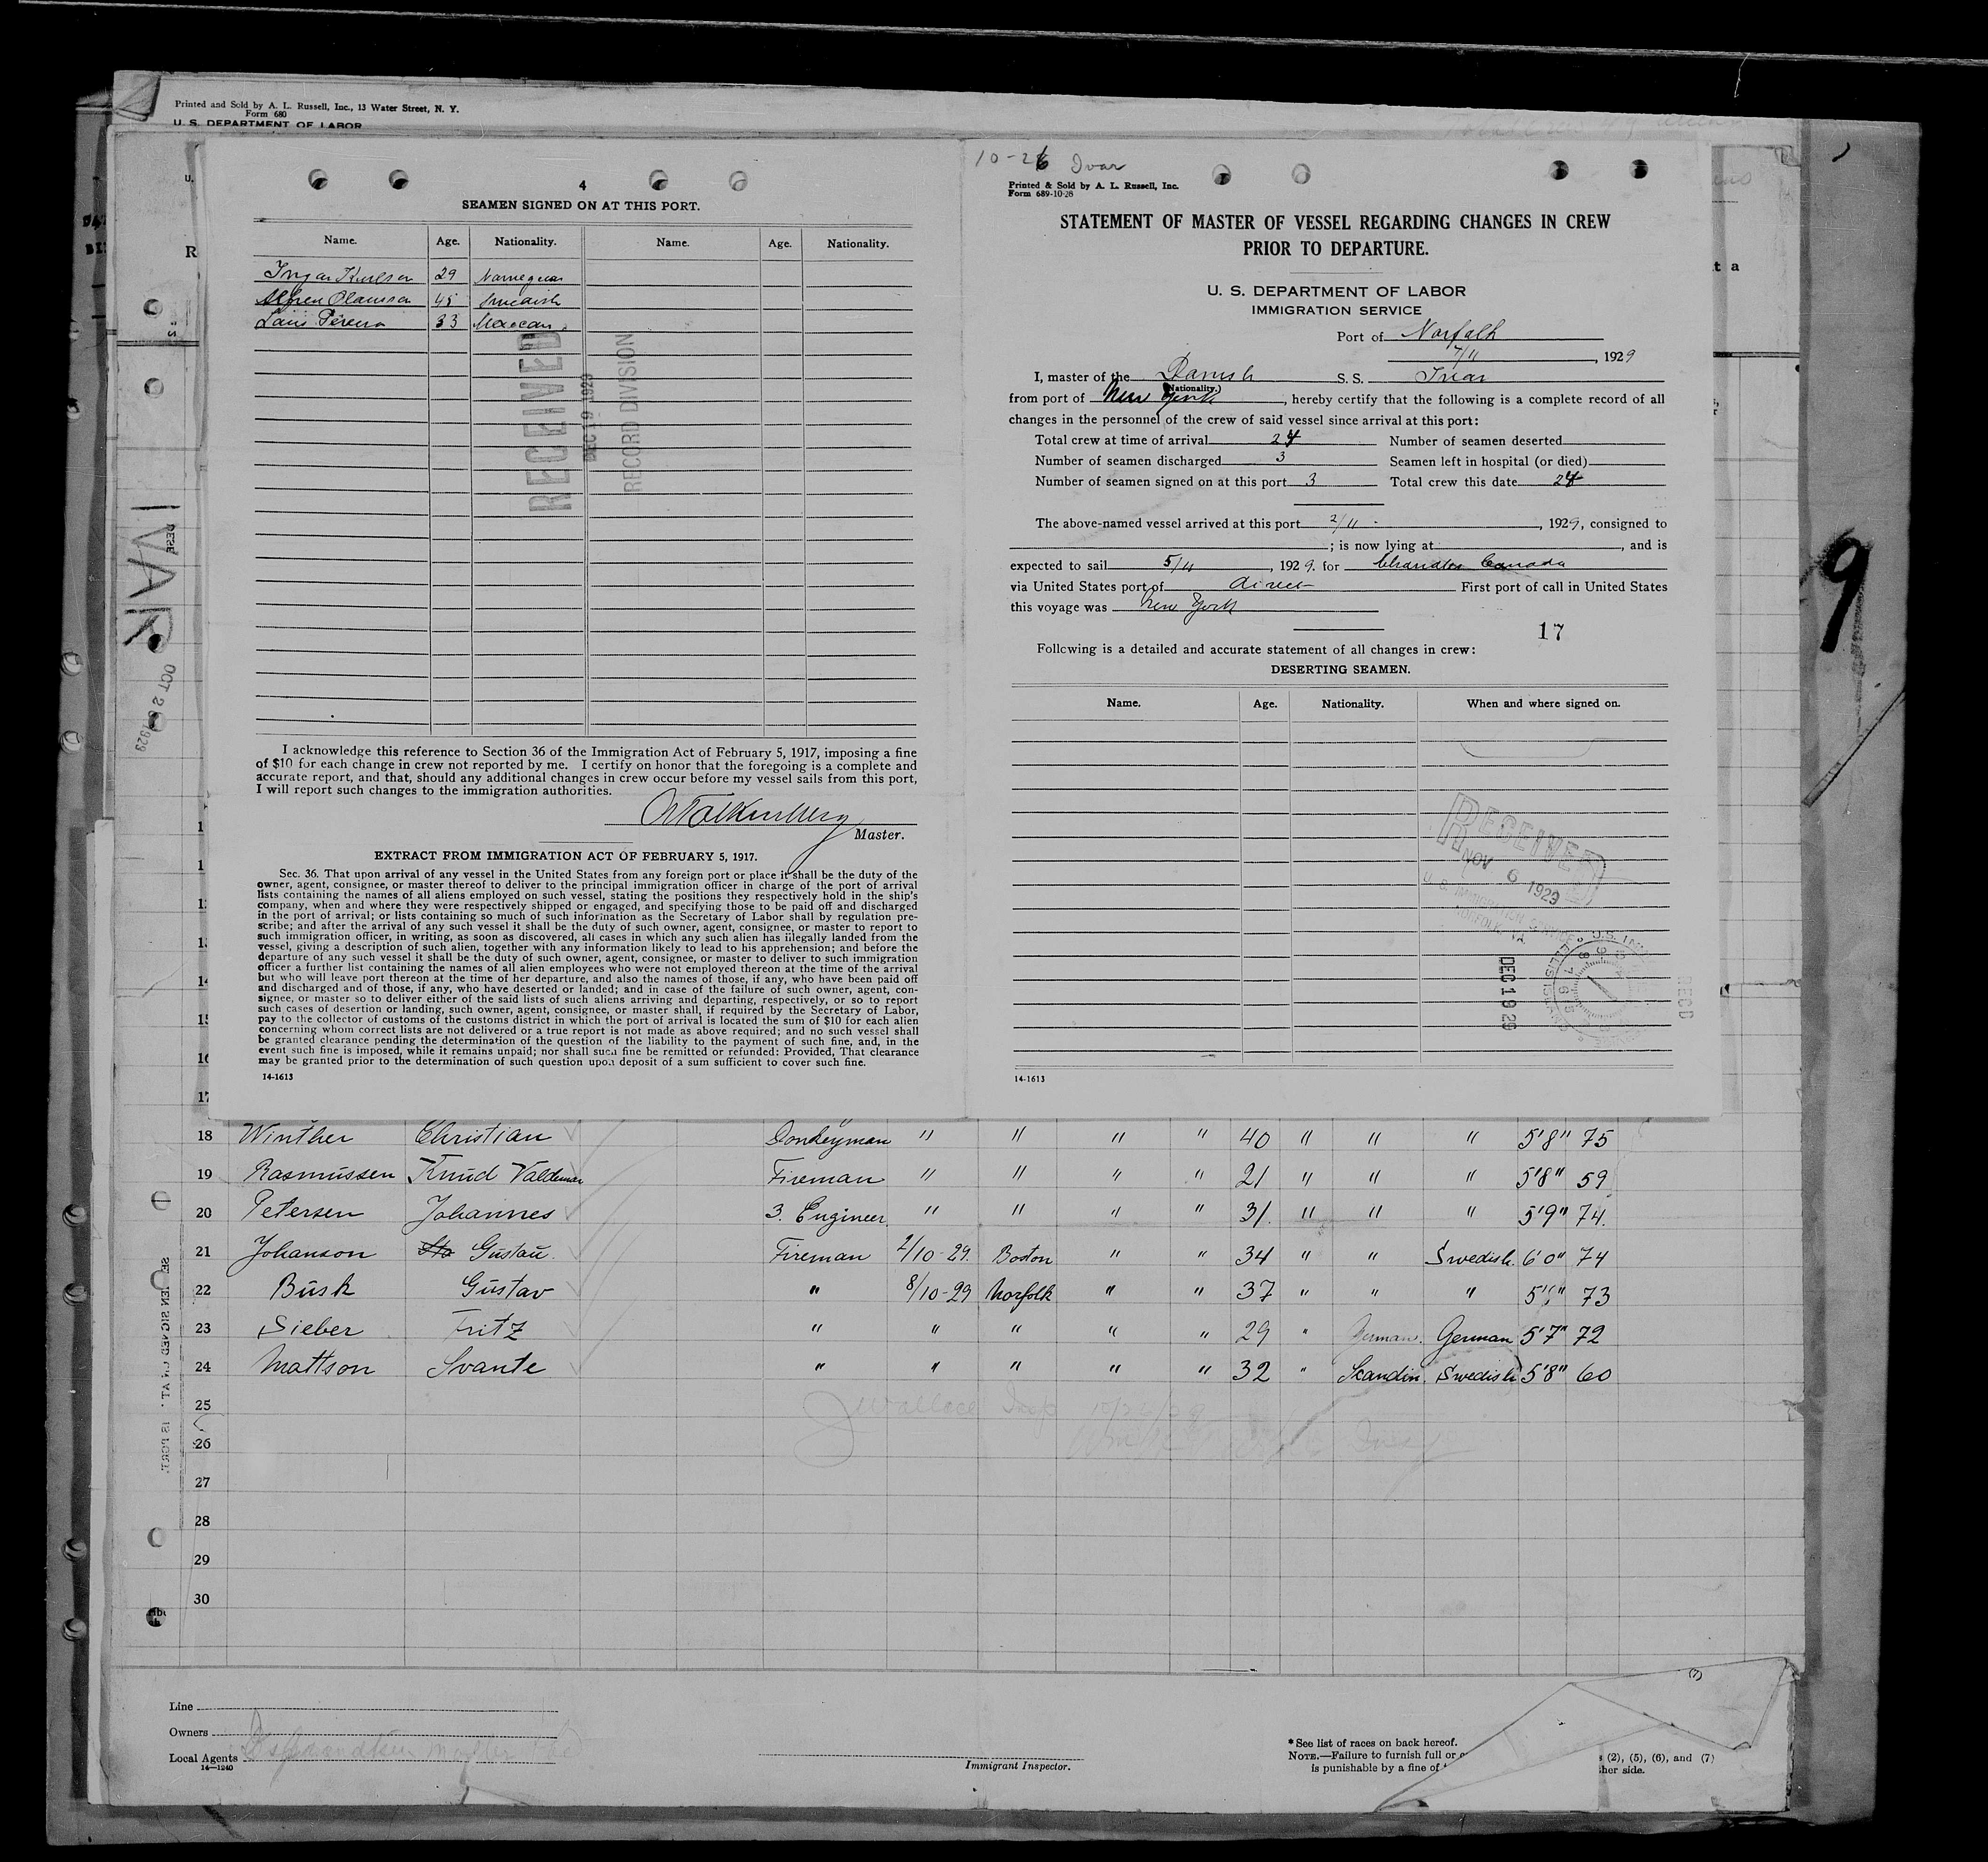 Printed and Sold by A. L. Russell, Inc., 13 Water Street, N. Y.
Form 680
U. S. DEPARTMENT OF LABOR
4
SEAMEN SIGNED ON AT THIS PORT.
Name. Age. Nationality. Name. Age. Nationality.
29 Norwegian
45 Swedish
33 Mexican
RECEIVED
DEC 19 1929
RECORD DIVISION
I acknowledge this reference to Section 36 of the Immigration Act of February 5, 1917, imposing a fine
of $10 for each change in crew not reported by me. I certify on honor that the foregoing is a complete and
accurate report, and that, should any additional changes in crew occur before my vessel sails from this port,
I will report such changes to the immigration authorities.
Master.
EXTRACT FROM IMMIGRATION ACT OF FEBRUARY 5, 1917.
Sec. 36. That upon arrival of any vessel in the United States from any foreign port or place it shall be the duty of the
owner, agent, consignee, or master thereof to deliver to the principal immigration officer in charge of the port of arrival
lists containing the names of all aliens employed on such vessel, stating the positions they respectively hold in the ship's
company, when and where they were respectively shipped or engaged, and specifying those to be paid off and discharged
in the port of arrival; or lists containing so much of such information as the Secretary of Labor shall by regulation pre-
scribe; and after the arrival of any such vessel it shall be the duty of such owner, agent, consignee, or master to report to
such immigration officer, in writing, as soon as discovered, all cases in which any such alien has illegally landed from the
vessel, giving a description of such alien, together with any information likely to lead to his apprehension; and before the
departure of any such vessel it shall be the duty of such owner, agent, consignee, or master to deliver to such immigration
officer a further list containing the names of all alien employees who were not employed thereon at the time of the arrival
but who will leave port thereon at the time of her departure, and also the names of those, if any, who have been paid off
and discharged and of those, if any, who have deserted or landed; and in case of the failure of such owner, agent, con-
signee, or master so to deliver either of the said lists of such aliens arriving and departing, respectively, or so to report
such cases of desertion or landing, such owner, agent, consignee, or master shall, if required by the Secretary of Labor,
pay to the collector of customs of the customs district in which the port of arrival is located the sum of $10 for each alien
concerning whom correct lists are not delivered or a true report is not made as above required; and no such vessel shall
be granted clearance pending the determination of the question of the liability to the payment of such fine, and, in the
event such fine is imposed, while it remains unpaid; nor shall such fine be remitted or refunded: Provided, That clearance
may be granted prior to the determination of such question upon deposit of a sum sufficient to cover such fine.
14-1613
10-26 Ivar
Printed & Sold by A. L. Russell, Inc.
Form 689-10-28
STATEMENT OF MASTER OF VESSEL REGARDING CHANGES IN CREW
PRIOR TO DEPARTURE.
U. S. DEPARTMENT OF LABOR
IMMIGRATION SERVICE
Port of Norfolk
, 1929
I, master of the Danish S. S. Ivar
(Nationality.)
from port of New York, hereby certify that the following is a complete record of all
changes in the personnel of the crew of said vessel since arrival at this port:
Total crew at time of arrival 24 Number of seamen deserted
Number of seamen discharged 3 Seamen left in hospital (or died)
Number of seamen signed on at this port 3 Total crew this date 24
The above-named vessel arrived at this port 2/11 , 1929, consigned to
; is now lying at , and is
expected to sail 5/11, 1929. for Chandler Canada
via United States port of direct First port of call in United States
this voyage was New York
17
Following is a detailed and accurate statement of all changes in crew:
DESERTING SEAMEN.
Name. Age. Nationality. When and where signed on.
RECEIVED
NOV 6 1929
U. S. IMMIGRATION SERVICE
NORFOLK, VA.
DEC 19 29
14-1613
IVAR
OCT 26 1929
9
18 Winther Christian Donkeyman " " " " 40 " " " 5'8" 75
19 Rasmussen Knud Valdemar Fireman " " " " 21 " " " 5'8" 59
20 Petersen Johannes 3. Engineer " " " " 31. " " " 5'9" 74.
21 Johanson Gustav. Fireman 2/10-29. Boston " " 34 " " Swedish. 6'0" 74
22 Busk Gustav " 8/10-29 Norfolk " " 37 " " " 73
23 Sieber Fritz " " " " " 29 " German. German 5'7" 72
24 Mattson Svante " " " " " 32 " Scandin. Swedish 5'8" 60
25
26
27
28
29
30
Line
Owners
Local Agents
14-1240
Immigrant Inspector.
(7)
* See list of races on back hereof.
NOTE.—Failure to furnish full or
(2), (5), (6), and (7)
is punishable by a fine of
her side.